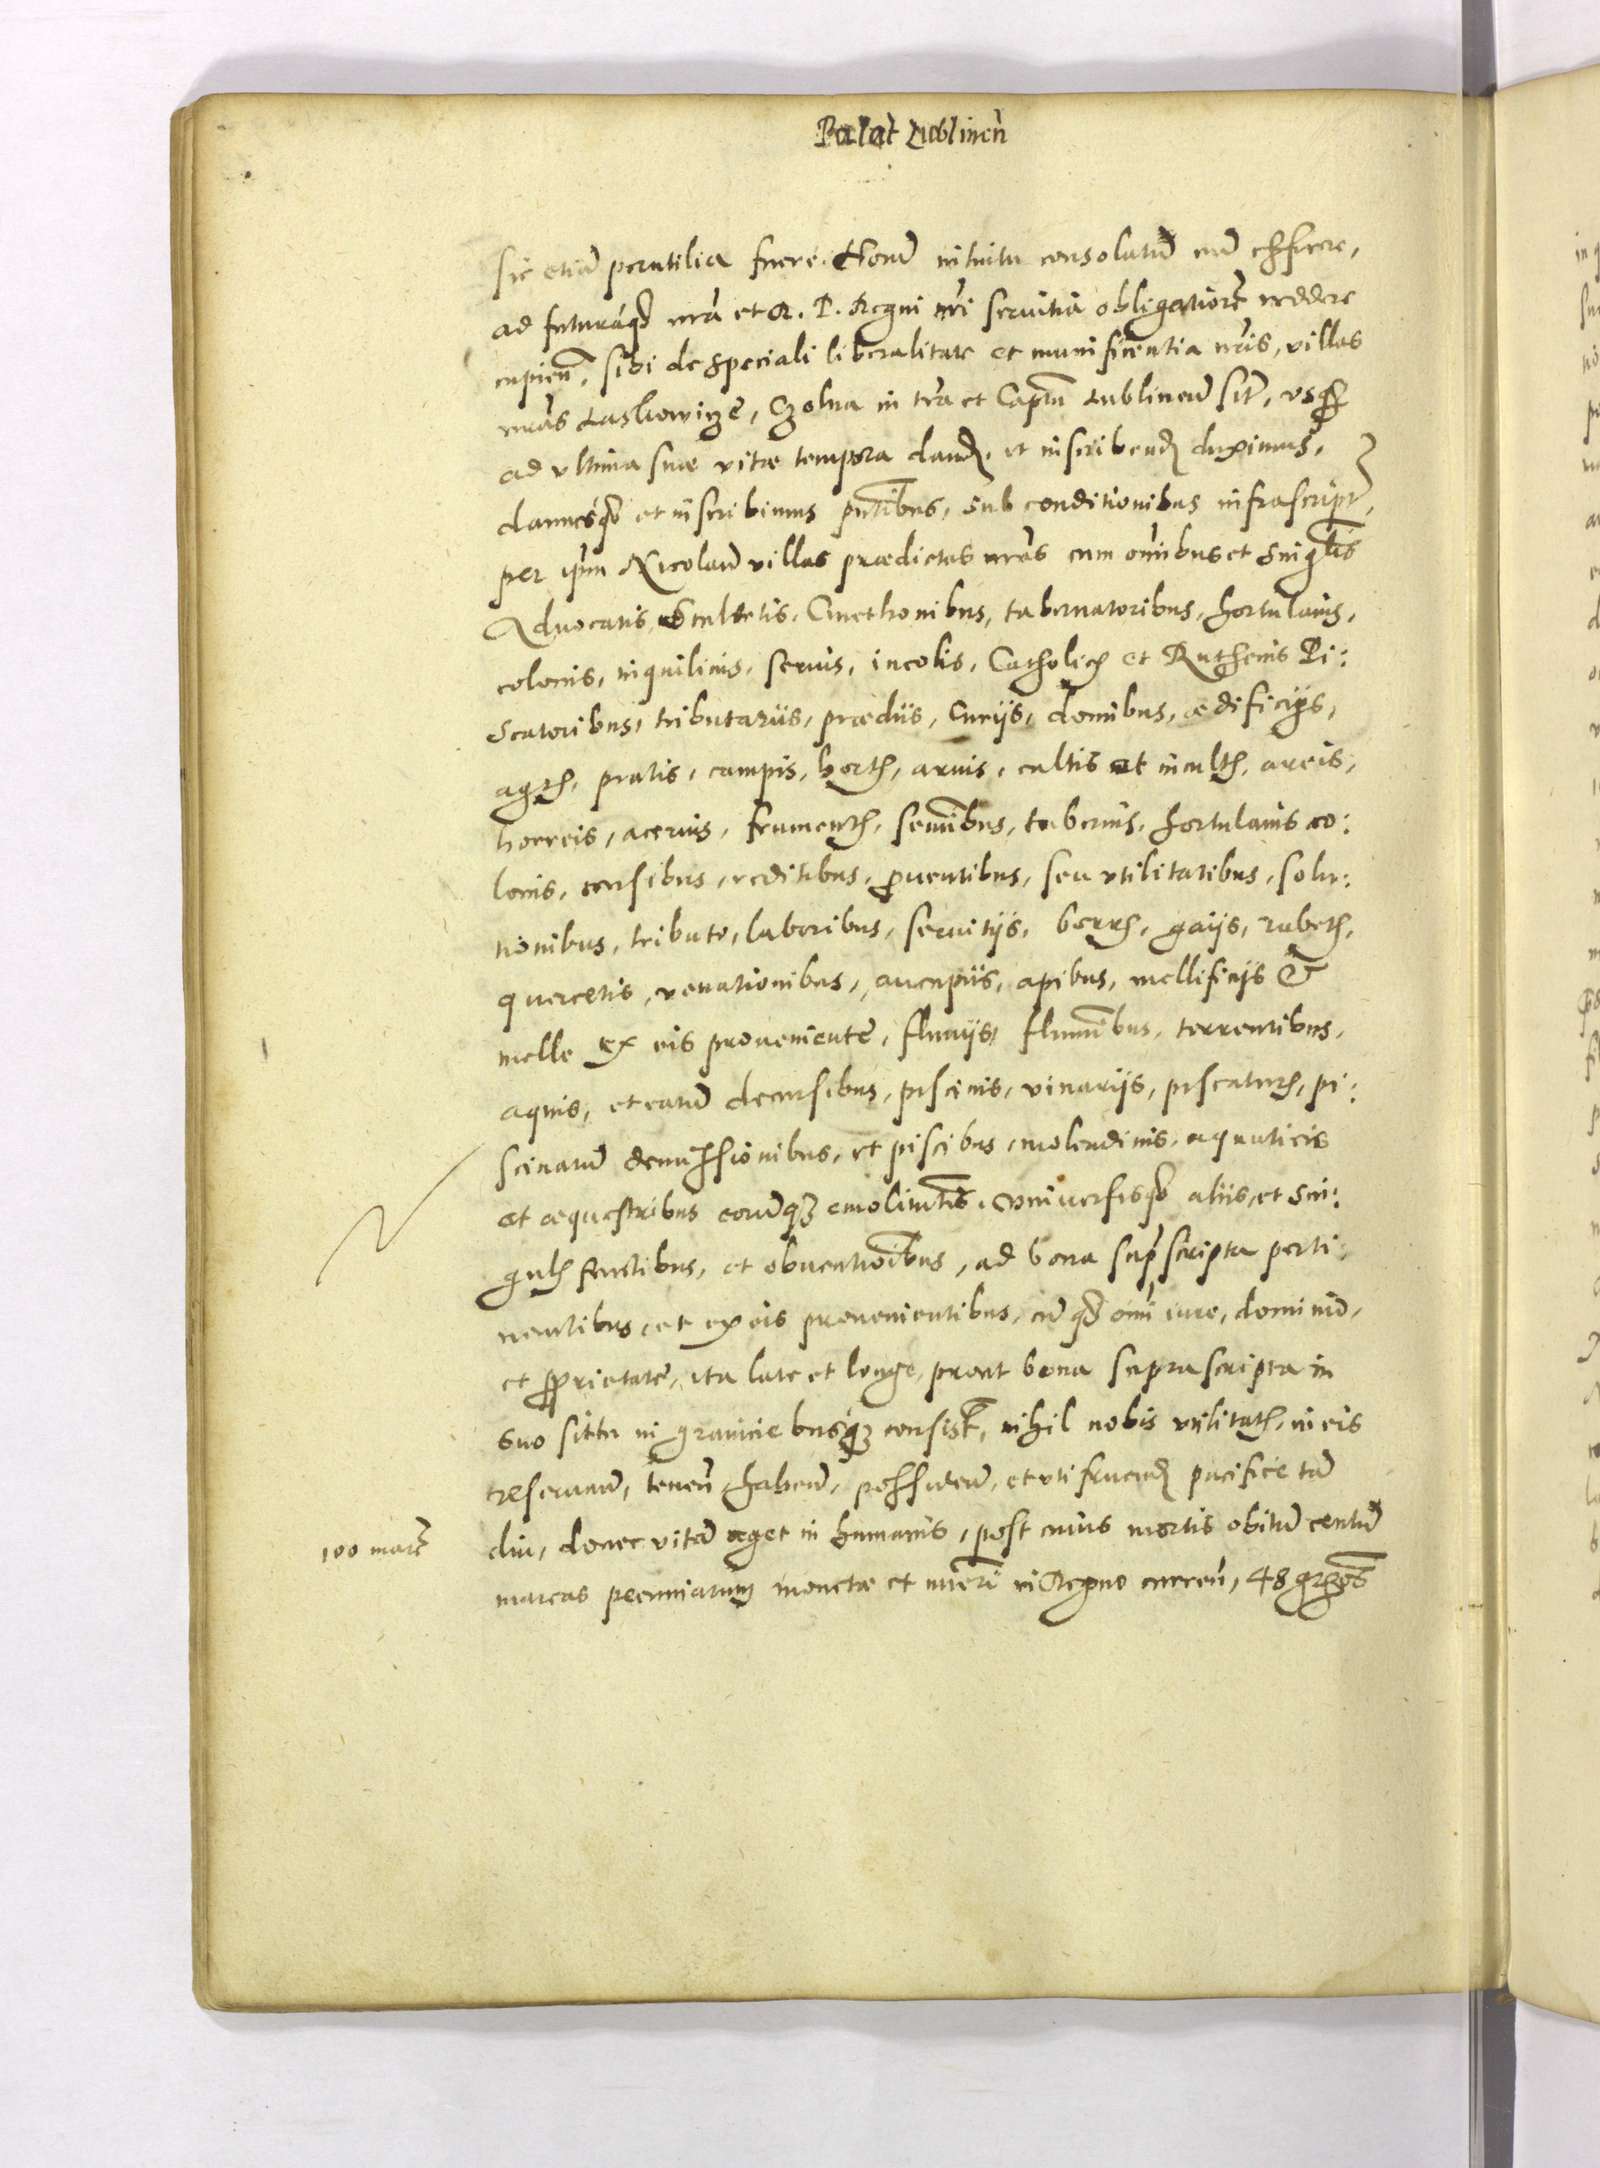 Palat Lublinen̄
sic etiā perutilia fuere. Horū intuitu consolatū eū efficere,
ad futuraq̨ nr̄a et R. P. Regni nr̄i seruitia obligatiorē reddere
cupien̄, sibi de speciali liberalitate et munificentia nr̄is, villas
nr̄as Laskowicze, Czolna in tr̄a et Captū Lublinen̄ sit̄, vsq̨
ad vltima suæ vitæ tempora dand̄. et inscribend̄ duximus,
damusq̨ et inscribimus pn̄tibus, sub conditionibus infrascript̄,
per ip̄m Nicolaū villas prædictas nr̄as cum om̄ibus et singlis
Aduocatis, Scultetis, Cmethonibus, tabernatoribus, hortulanis,
colonis, inquilinis, seruis, incolis, Catholicis et Ruthenis Pi:
scatoribus, tributariis, prædiis, Curijs, domibus, ædificijs,
agris, pratis, campis, hortis, aruis, cultis et incultis, areis,
horreis, aceruis, frumentis, semībus, tabernis, hortulanis co:
lonis, censibus, reditibus, prouentibus, seu vtilitatibus, solu:
tionibus, tributo, laboribus, seruitijs, borris, gaijs, rubetis,
quercetis, venationibus, aucupiis, apibus, mellificijs &
melle ex eis proueniente, fluuijs, flumībus, torrentibus,
aquis, et earū decursibus, piscinis, vinarijs, piscaturis, pi:
scinarū demissionibus, et piscibus, molendinis, aquaticis
et æquestribus eorūq̨ emolimtis, Vniuersisq̨ aliis, et sin:
gulis fructibus, et obuentionibus, ad bona suprascripta perti:
nentibus, et ex eis prouenientibus, cū q̨ om̄i iure, dominio,
et proprietate, ita late et longe, prout bona suprascripta in
suo situ in graniciebusq̨ consist̄, nihil nobis vtilitatis, in eis
reseruan̄, tenen̄ haben̄, possiden̄, et vti fruend̄ pacifice tā
diu, donec vitā aget in humanis, post cuius mortis obitū centū
100 marc̄
marcas pecuniarum monetæ et nūeri in Regno curren̄, 48 gros